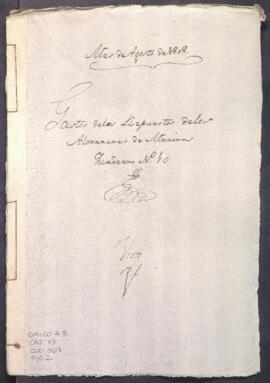 Mes de Agosto de 1808.
Gastos delos Repuestos delos
Almazenes de Marina
Quaderno Nº. 10
GM-CO 4.5
CAJ. 73
DOC. 507
Fol. 2